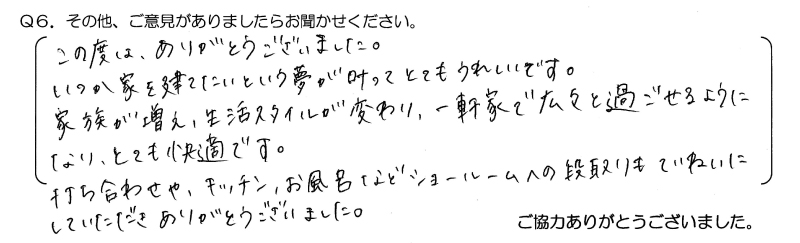 Q6．その他、ご意見がありましたらお聞かせください。
この度は、ありがとうございました。
いつか家を建てたいという夢が叶ってとてもうれしいです。
家族が増え、生活スタイルが変わり、一軒家で広々と過ごせるように
なり、とても快適です。
打ち合わせや、キッチン、お風呂などショールームへの段取りもていねいに
していただきありがとうございました。
ご協力ありがとうございました。